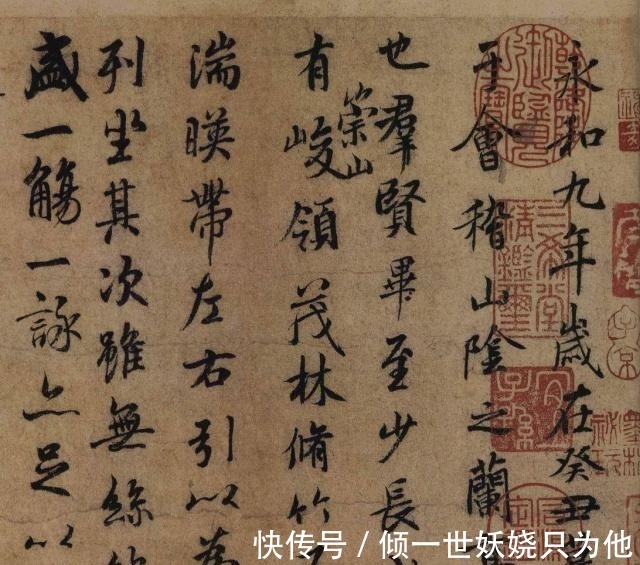 永和九年歲在癸丑
于會稽山陰之蘭
也羣賢畢至少長
有崇山峻領茂林脩竹
湍暎帶左右引以為
列坐其次雖無絲
盛一觴一詠亦足以
三希堂精鑑璽
宜子孫
快传号 / 倾一世妖娆只为他